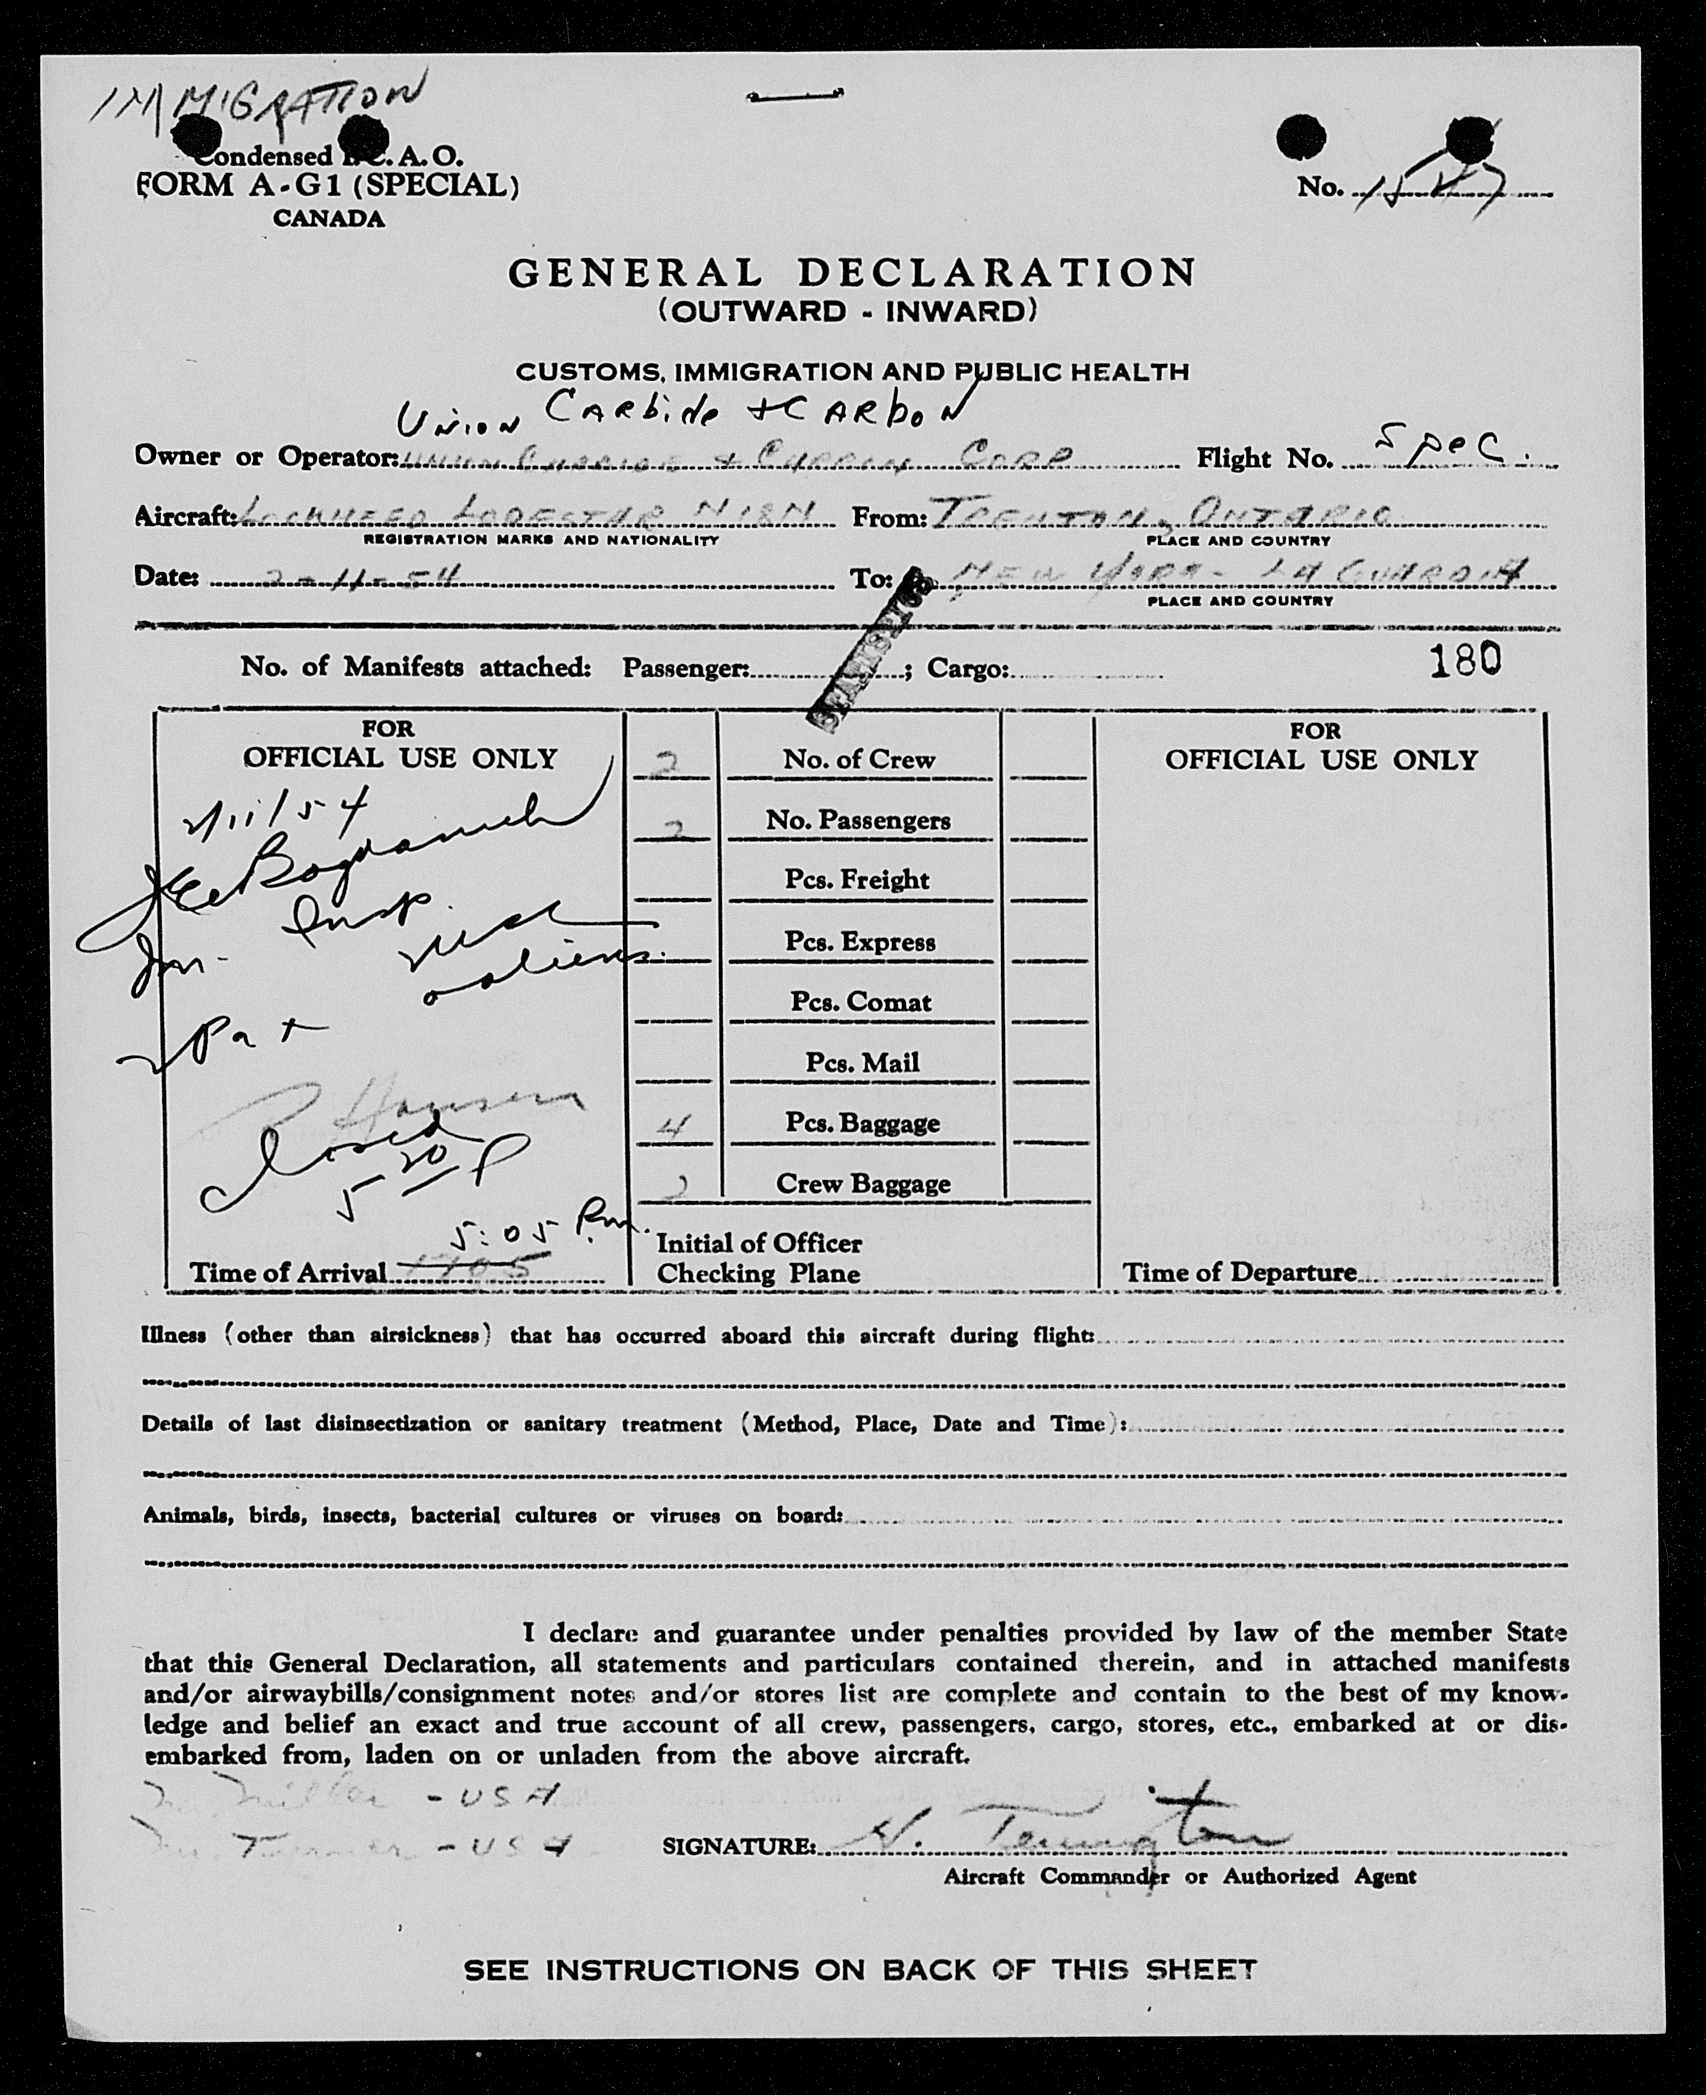 IMMIGRATION
Condensed I.C.A.O.
FORM A-G1 (SPECIAL)
CANADA
No. 1547
GENERAL DECLARATION
(OUTWARD - INWARD)
CUSTOMS, IMMIGRATION AND PUBLIC HEALTH
Union Carbide + Carbon
Owner or Operator: Union Carbide + Carbon Corp Flight No. Spec.
Aircraft: Lockheed Lodestar N18N From: Trenton, Ontario
REGISTRATION MARKS AND NATIONALITY PLACE AND COUNTRY
Date: 2-11-54 To: New York - La Guardia
PLACE AND COUNTRY
No. of Manifests attached: Passenger: ; Cargo: 180
FOR
OFFICIAL USE ONLY
2/11/54
Bogdanich
Im. Insp.
aliens.
Hansen
Closed
5 20 P
5:05 P.m.
Time of Arrival 1705
2 No. of Crew
2 No. Passengers
Pcs. Freight
Pcs. Express
Pcs. Comat
Pcs. Mail
4 Pcs. Baggage
2 Crew Baggage
Initial of Officer
Checking Plane
FOR
OFFICIAL USE ONLY
Time of Departure
Illness (other than airsickness) that has occurred aboard this aircraft during flight:
Details of last disinsectization or sanitary treatment (Method, Place, Date and Time):
Animals, birds, insects, bacterial cultures or viruses on board:
I declare and guarantee under penalties provided by law of the member State
that this General Declaration, all statements and particulars contained therein, and in attached manifests
and/or airwaybills/consignment notes and/or stores list are complete and contain to the best of my know-
ledge and belief an exact and true account of all crew, passengers, cargo, stores, etc., embarked at or dis-
embarked from, laden on or unladen from the above aircraft.
Miller - USA
Turner - USA
SIGNATURE:
Aircraft Commander or Authorized Agent
SEE INSTRUCTIONS ON BACK OF THIS SHEET